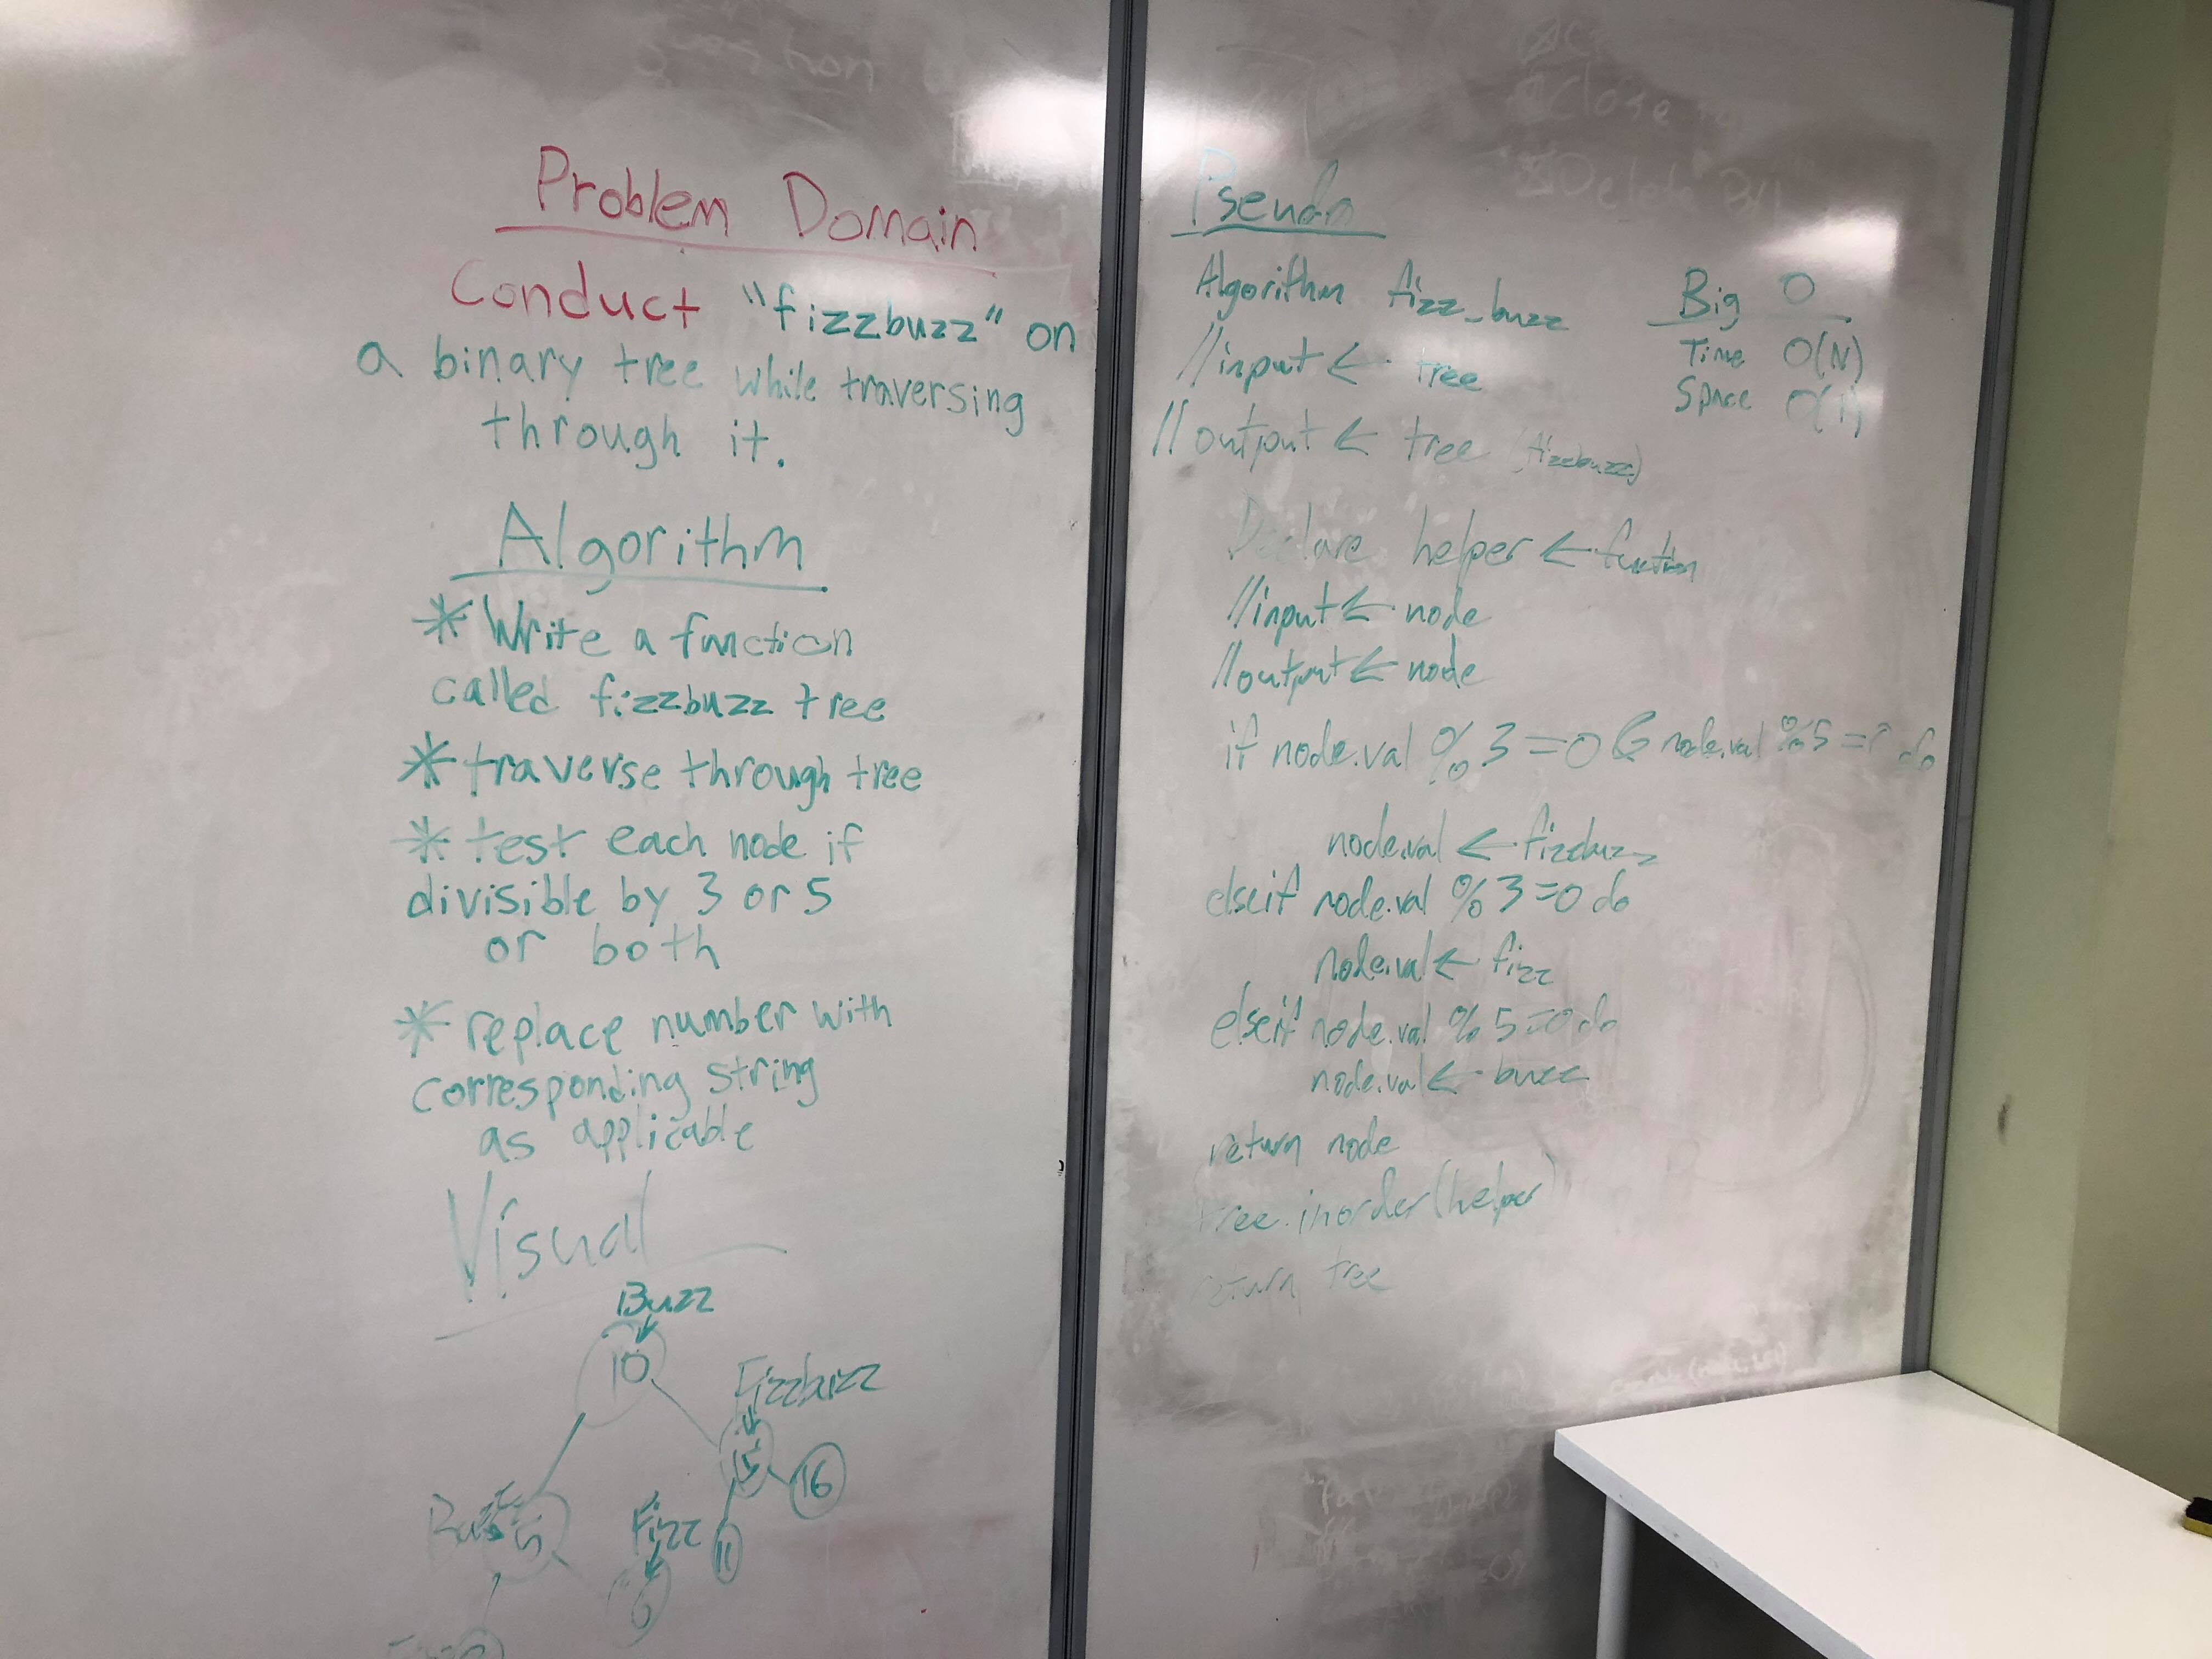 Problem Domain
Conduct "fizzbuzz" on
a binary tree while traversing
through it.
Algorithm
* Write a function
called fizzbuzz tree
* traverse through tree
* test each node if
divisible by 3 or 5
or both
* replace number with
corresponding string
as applicable
Visual
Buzz
10
Fizzbuzz
15
16
Buzz
5
Fizz
11
6
Pseudo
Algorithm fizz_buzz
//input ← tree
//output ← tree (fizzbuzz)
Big O
Time O(N)
Space O(1)
Declare helper ← function
//input ← node
//output ← node
if node.val % 3 = 0 & node.val % 5 = do
node.val ← fizzbuzz
elseif node.val % 3 = 0 do
node.val ← fizz
elseif node.val % 5 = 0 do
node.val ← buzz
return node
tree.inorder(helper)
return tree